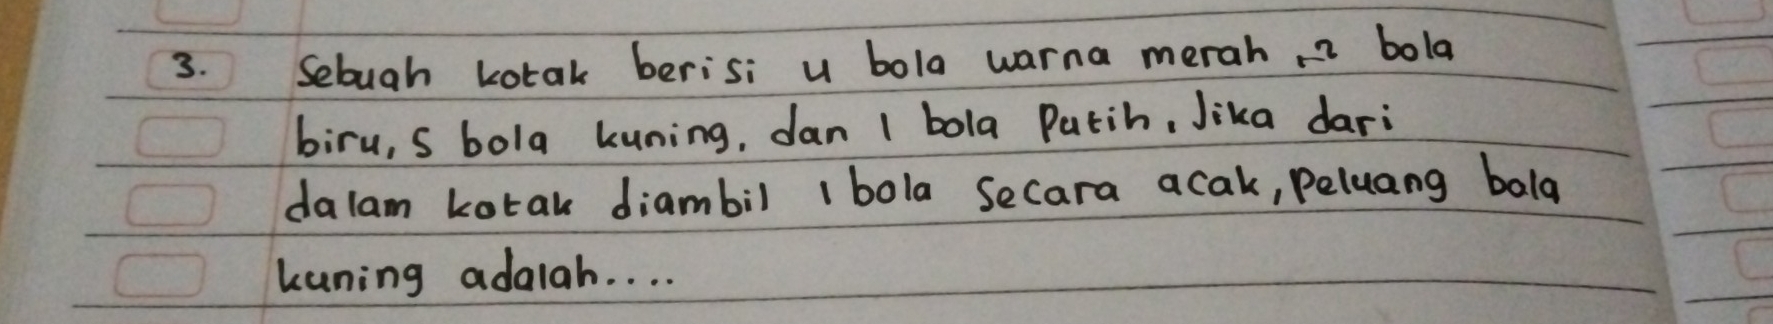 3. Sebuah kotak berisi 4 bola warna merah, 2 bola
biru, 5 bola kuning, dan 1 bola Putih. Jika dari
dalam kotak diambil 1 bola Secara acak, Peluang bola
kuning adalah....